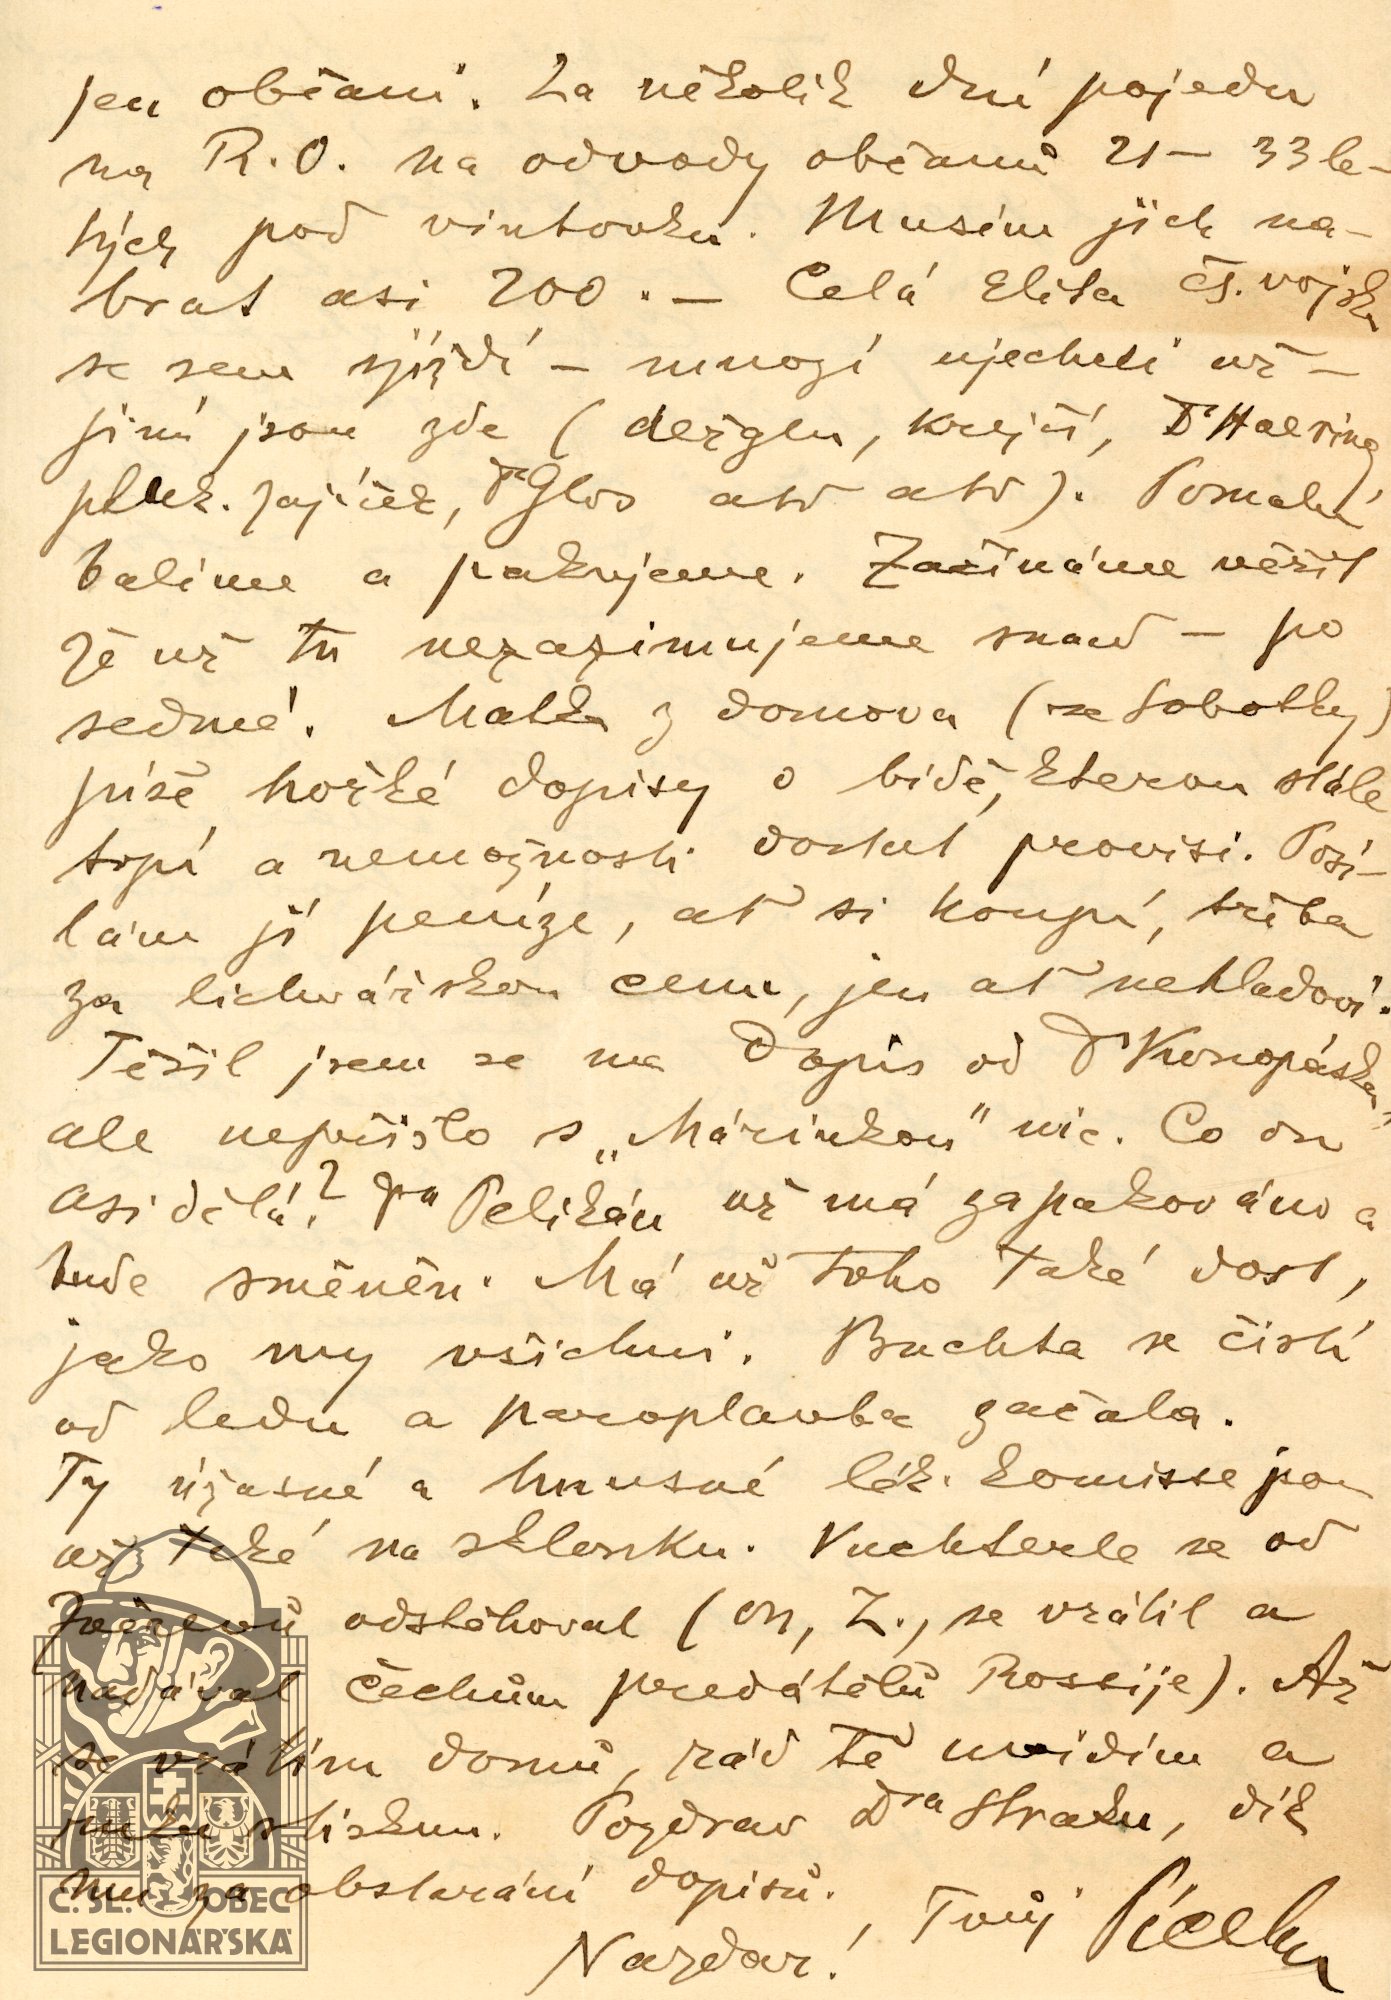 jen občani. Za několik dní pojedu
na R.O. na odvody občanů 21 – 33 le-
tých pod vintovku. Musím jich na-
brat asi 200. – Celá elita čs. vojska
se sem sjíždí – mnozí ujechali už –
jiní jsou zde (Krejčí, Dr Haering
pluk. Zajíček, Dr Glos atd atd). Pomalu
balíme a pakujeme. Začínáme věřit
že už tu nezazimujeme snad – po
sedmé. Matka z domova (ze Sobotky)
píše hořké dopisy o bídě, kterou stále
trpí a nemožnosti dostat provisi. Posí-
lám jí peníze, ať si koupí, třeba
za lichvářskou cenu, jen ať nehladoví.
Těšil jsem se na dopis od Dr Konopáska,
ale nepřišlo s „Márinkou" nic. Co on
asi dělá? Pelikán už má zapakováno a
bude směněn. Má už toho také dost,
jako my všichni. Buchta se čistí
od ledu a paroplavba začala.
Ty úžasné a hnusné lék. komisse jsou
už také na sklonku. Vuchterle se od
odstěhoval (on, Z., se vrátil a
nadával Čechům predátělů Rossije). Až
se vrátím domů, rád Tě uvidím a
ruku stisknu. Pozdrav Dra Straku, dík
mu za obstarání dopisů.
Nazdar! Tvůj
Č. SL. OBEC
LEGIONÁŘSKÁ